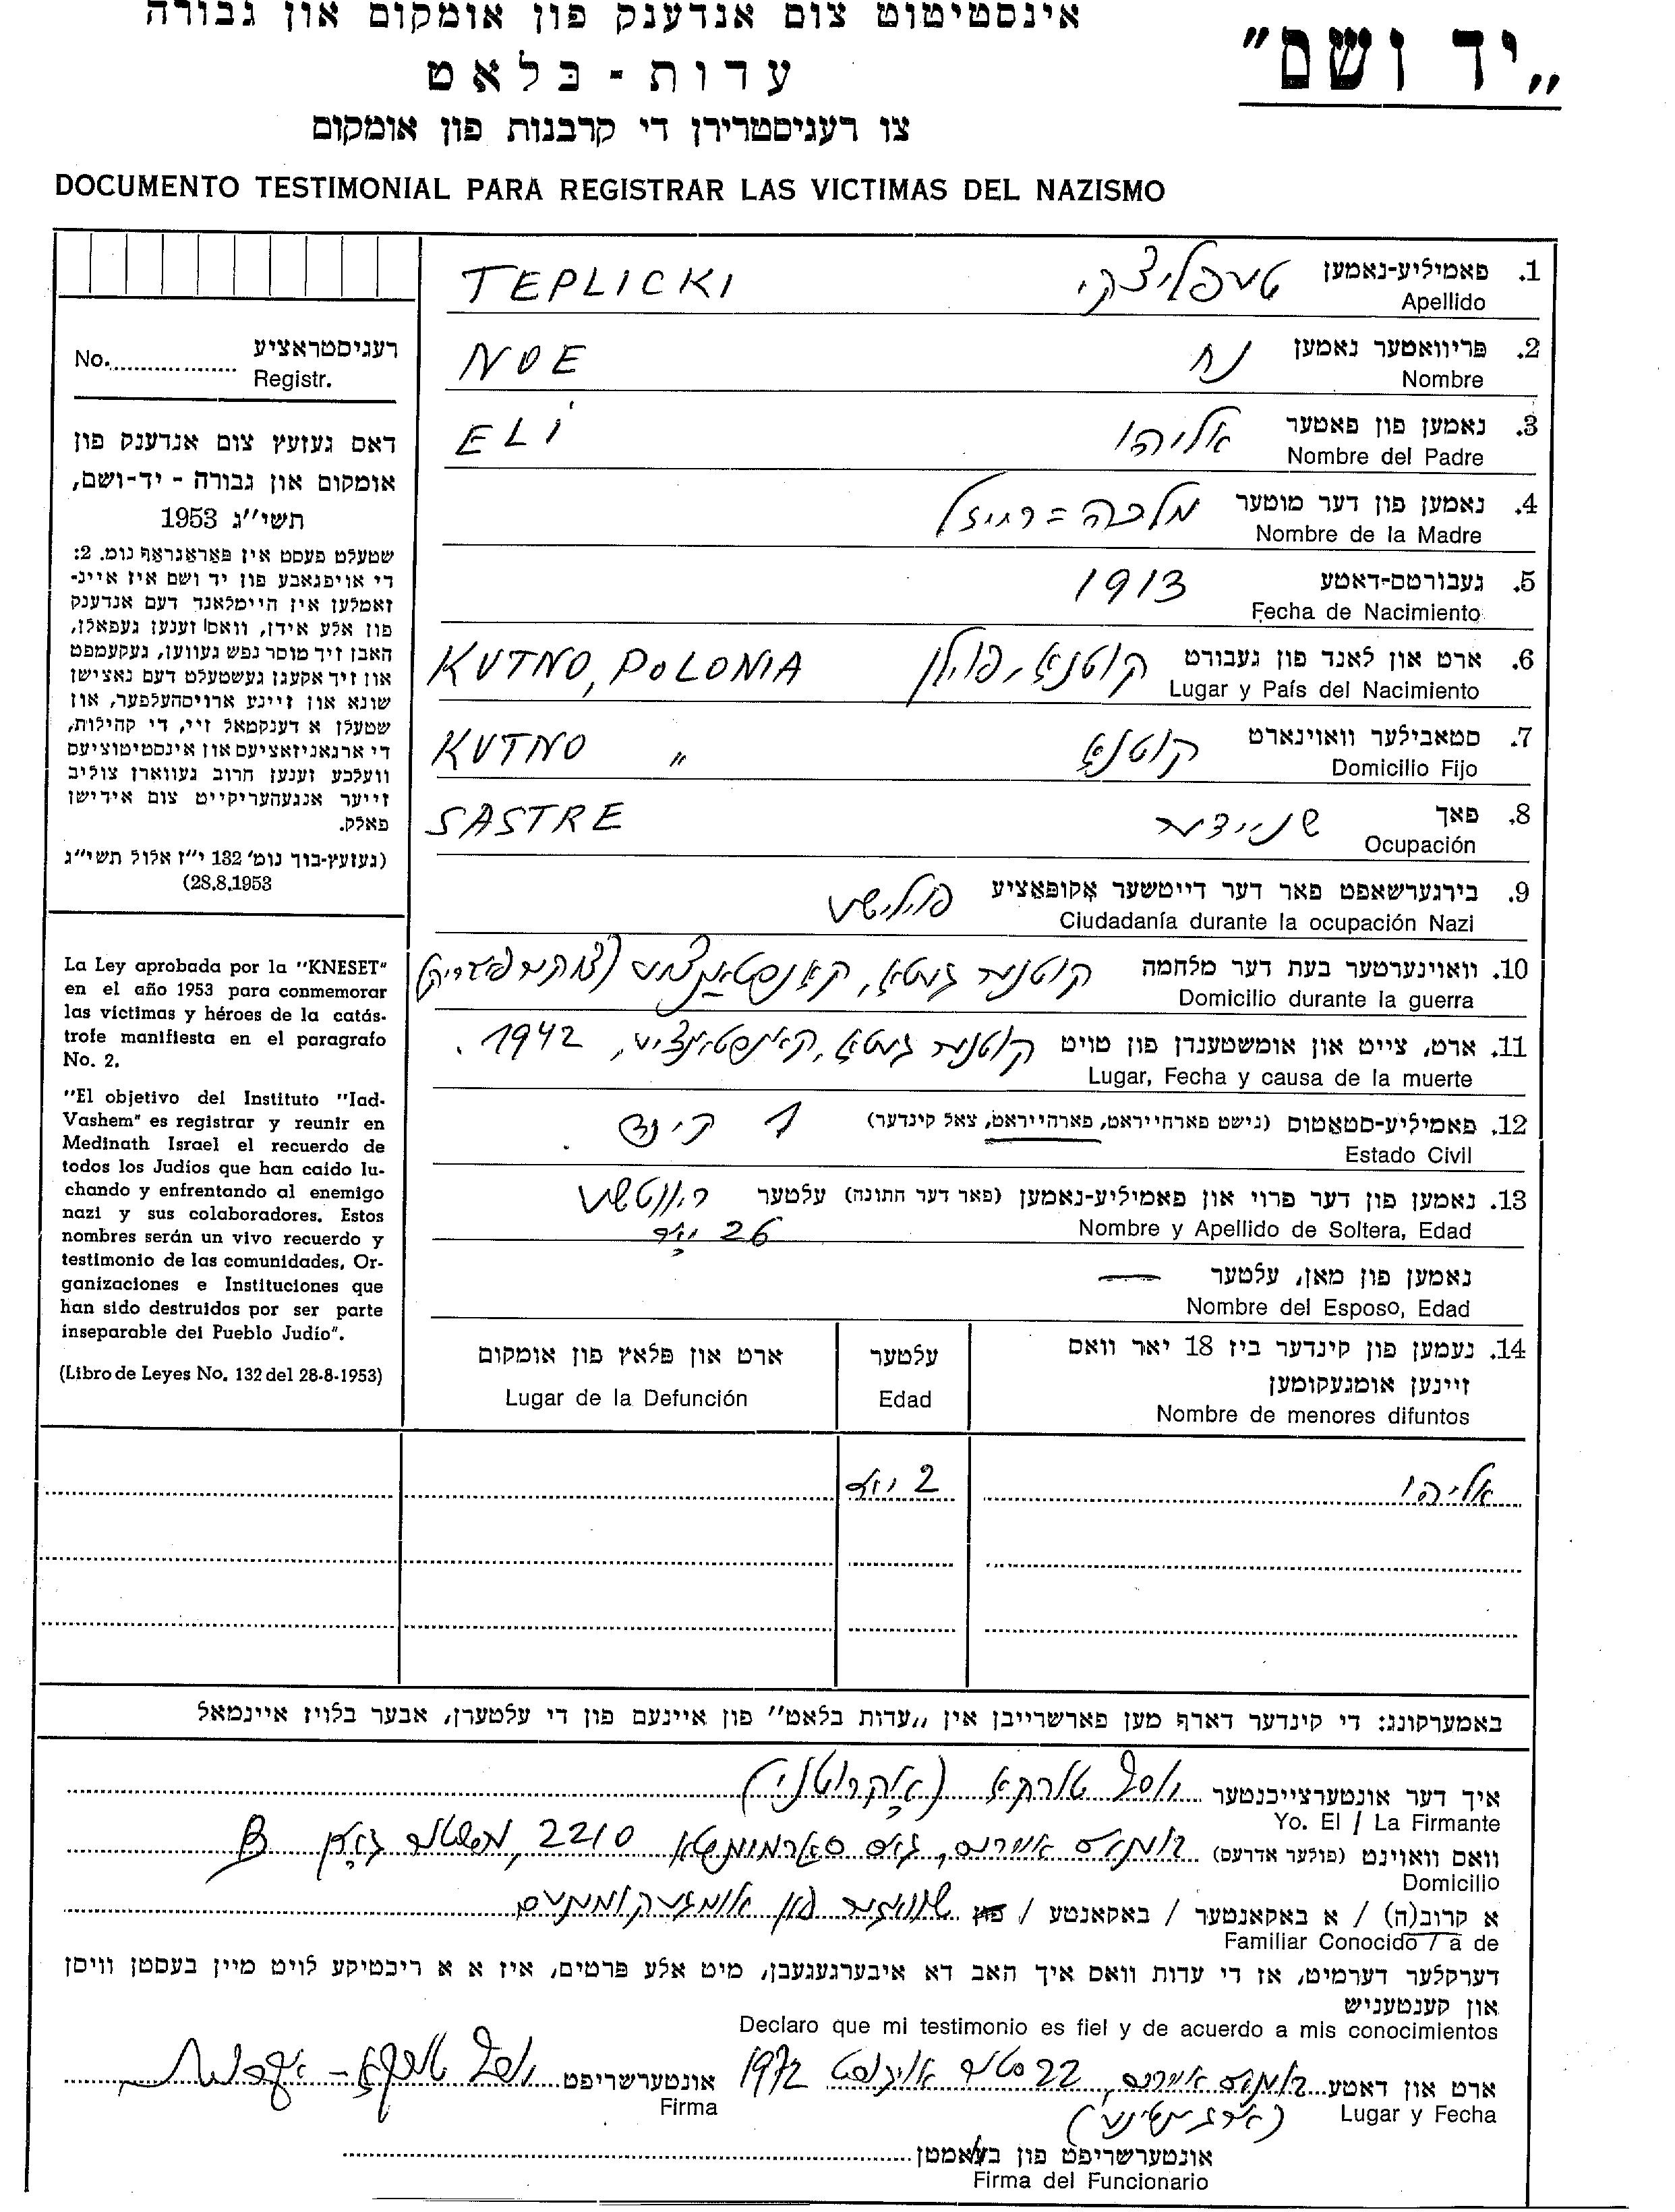 אינסטיטוט צום אנדענק פון אומקום און גבורה
„יד ושם”
עדות - בלאט
צו רעגיסטרירן די קרבנות פון אומקום
DOCUMENTO TESTIMONIAL PARA REGISTRAR LAS VICTIMAS DEL NAZISMO
רעגיסטראציע
No. Registr.
דאס געזעץ צום אנדענק פון
אומקום און גבורה - יד-ושם,
תשי״ג 1953
שטעלט פעסט אין פאַראַגראַף נומ. 2:
די אויפגאבע פון יד ושם איז איינ-
זאמלען אין היימלאנד דעם אנדענק
פון אלע אידן, וואס זענען געפאלן,
האבן זיך מוסר נפש געווען, געקעמפט
און זיך אקעגן געשטעלט דעם נאצישן
שונא און זיינע ארויסהעלפער, און
שטעלן א דענקמאל זיי, די קהילות,
די ארגאניזאציעס און אינסטיטוציעס
וועלכע זענען חרוב געווארן צוליב
זייער אנגעהעריקייט צום אידישן
פאלק.
(געזעץ-בוך נומ׳ 132 י״ז אלול תשי״ג
28.8.1953)
La Ley aprobada por la "KNESET"
en el año 1953 para conmemorar
las víctimas y héroes de la catás-
trofe manifiesta en el paragrafo
No. 2.
"El objetivo del Instituto "Iad-
Vashem" es registrar y reunir en
Medinath Israel el recuerdo de
todos los Judíos que han caido lu-
chando y enfrentando al enemigo
nazi y sus colaboradores. Estos
nombres serán un vivo recuerdo y
testimonio de las comunidades, Or-
ganizaciones e Instituciones que
han sido destruidos por ser parte
inseparable del Pueblo Judío".
(Libro de Leyes No. 132 del 28-8-1953)
1. פאמיליע-נאמען טעפליצקי TEPLICKI
Apellido
2. פריוואטער נאמען נח NOE
Nombre
3. נאמען פון פאטער אליהו ELI
Nombre del Padre
4. נאמען פון דער מוטער מלכה=רייזל
Nombre de la Madre
5. געבורטס-דאטע 1913
Fecha de Nacimiento
6. ארט און לאנד פון געבורט קוטנא, פוילן KUTNO, POLONIA
Lugar y País del Nacimiento
7. סטאבילער וואוינארט קוטנא KUTNO "
Domicilio Fijo
8. פאך שניידער SASTRE
Ocupación
9. בירגערשאפט פאר דער דייטשער אָקופּאַציע פוילישע
Ciudadanía durante la ocupación Nazi
10. וואוינערטער בעת דער מלחמה קוטנער געטא, קאנסטאנציע (צוקער פאבריק)
Domicilio durante la guerra
11. ארט, צייט און אומשטענדן פון טויט קוטנער געטא, קאנסטאנציע, 1942.
Lugar, Fecha y causa de la muerte
12. פאמיליע-סטאטוס (נישט פארחייראט, פארהייראט, צאל קינדער) 1 קינד.
Estado Civil
13. נאמען פון דער פרוי און פאמיליע-נאמען (פאר דער חתונה) עלטער
26 יאר
Nombre y Apellido de Soltera, Edad
נאמען פון מאן, עלטער —
Nombre del Esposo, Edad
14. נעמען פון קינדער ביז 18 יאר וואס
זיינען אומגעקומען
Nombre de menores difuntos
עלטער
Edad
ארט און פלאץ פון אומקום
Lugar de la Defunción
אליהו 2 יאר
באמערקונג: די קינדער דארף מען פארשרייבן אין „עדות בלאט” פון איינעם פון די עלטערן, אבער בלויז איינמאל
איך דער אונטערצייכנטער יוסף
Yo. El / La Firmante
וואס וואוינט (פולער אדרעס) בוענאס איירעס, גאס סארמיענטא 2210, B
Domicilio
א קרוב(ה) / א באקאנטער / באקאנטע / פון שוואגער פון אומגעקומענעם
Familiar Conocido / a de
דערקלער דערמיט, אז די עדות וואס איך האב דא איבערגעגעבן, מיט אלע פרטים, איז א א ריכטיקע לויט מיין בעסטן וויסן
און קענטעניש
Declaro que mi testimonio es fiel y de acuerdo a mis conocimientos
ארט און דאטע בוענאס איירעס, 22סטער אויגוסט 1972 אונטערשריפט יוסף
Lugar y Fecha (ארגענטינע) Firma
אונטערשריפט פון בעאמטן
Firma del Funcionario